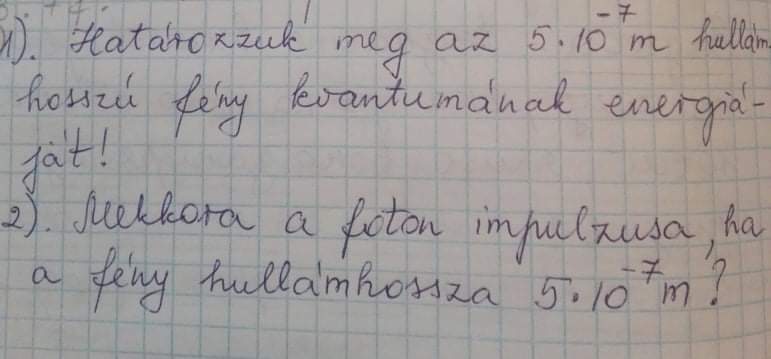 1). Határozzuk meg az 5·10⁻⁷m hullám
hosszú fény kvantumának energiá-
ját!
2). Mekkora a foton impulzusa, ha
a fény hullámhossza 5·10⁻⁷m?